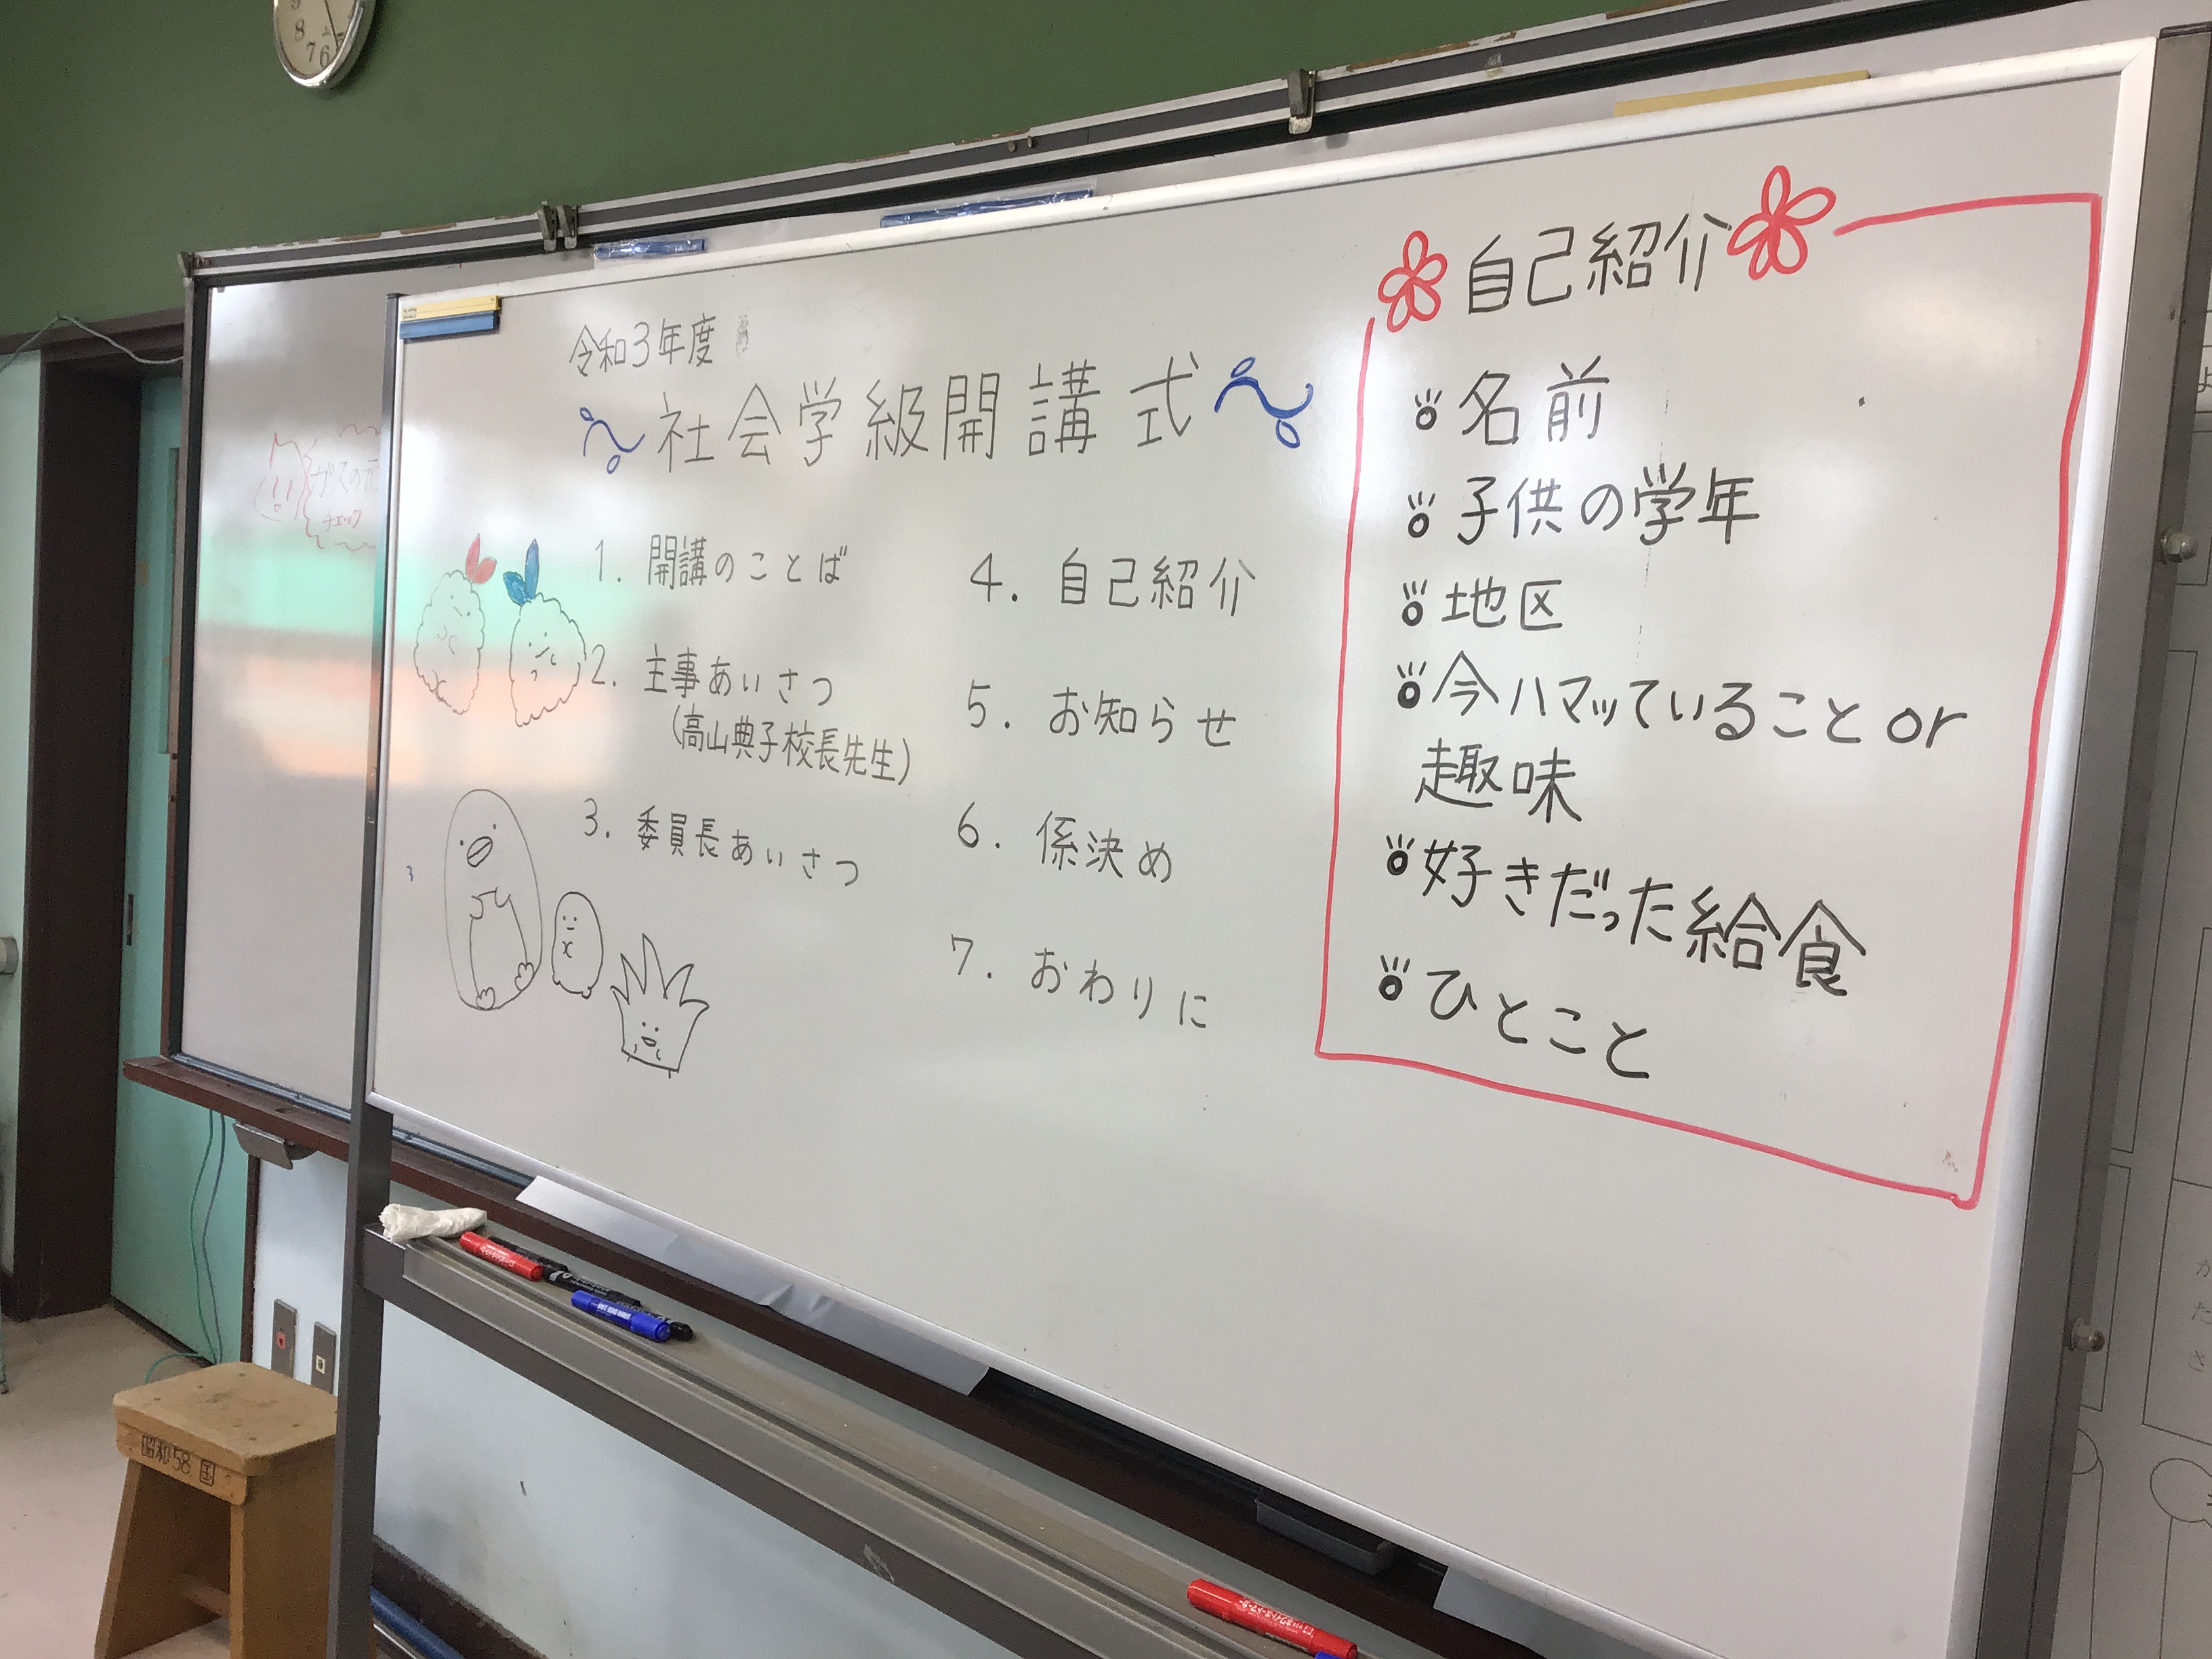 令和3年度
社会学級開講式
1. 開講のことば
2. 主事あいさつ
(高山典子校長先生)
3. 委員長あいさつ
4. 自己紹介
5. お知らせ
6. 係決め
7. おわりに
自己紹介
名前
子供の学年
地区
今ハマッていること or
趣味
好きだった給食
ひとこと
ガスの元
チェック
昭和58 国
9
8
7
6
か
た
さ